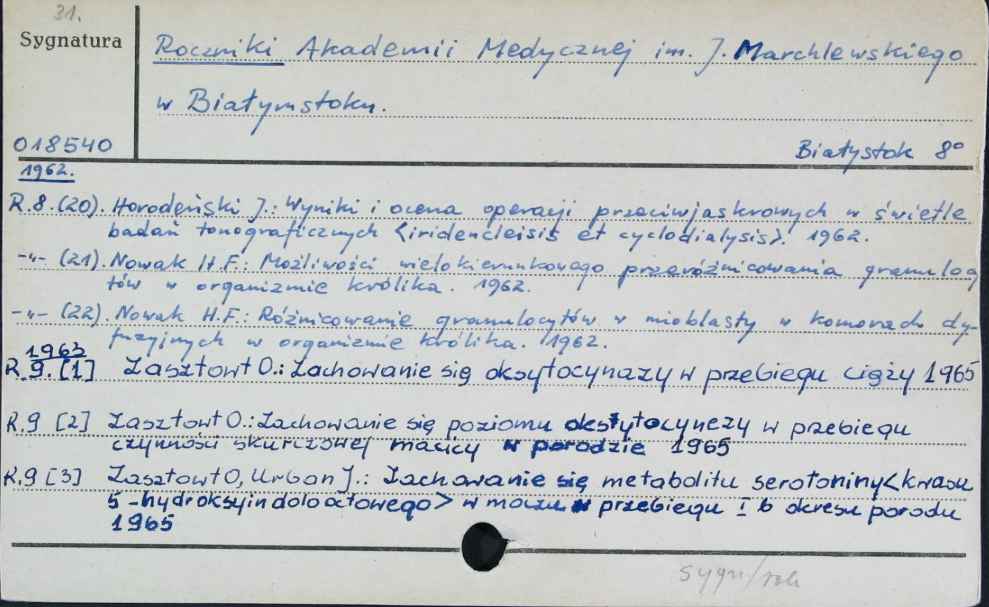 31.
Sygnatura
Roczniki Akademii Medycznej im. J. Marchlewskiego
w Białymstoku.
018540
Białystok 8°
1962.
R.8.(20). Horodeński J.: Wyniki i ocena operacji przeciwjaskrowych w świetle
badań tonograficznych <iridencleisis et cyclodialysis>. 1962.
-"- (21). Nowak H.F.: Możliwości wielokierunkowego przeróżnicowania granulocy
tów w organizmie królika. 1962.
-"- (22). Nowak H.F.: Różnicowanie granulocytów w mioblasty w komorach dy-
fuzyjnych w organizmie królika. 1962.
1963
R.9.[1] Zasztowt O.: Zachowanie się oksytocynazy w przebiegu ciąży 1965
R.9 [2] Zasztowt O.: Zachowanie się poziomu oksytocynazy w przebiegu
czynności skurczowej macicy w porodzie 1965
R.9 [3] Zasztowt O, Urban J.: Zachowanie się metabolitu serotoniny <kwasu
5-hydroksyindolooctowego> w moczu w przebiegu I b okresu porodu
1965
sygn/rok